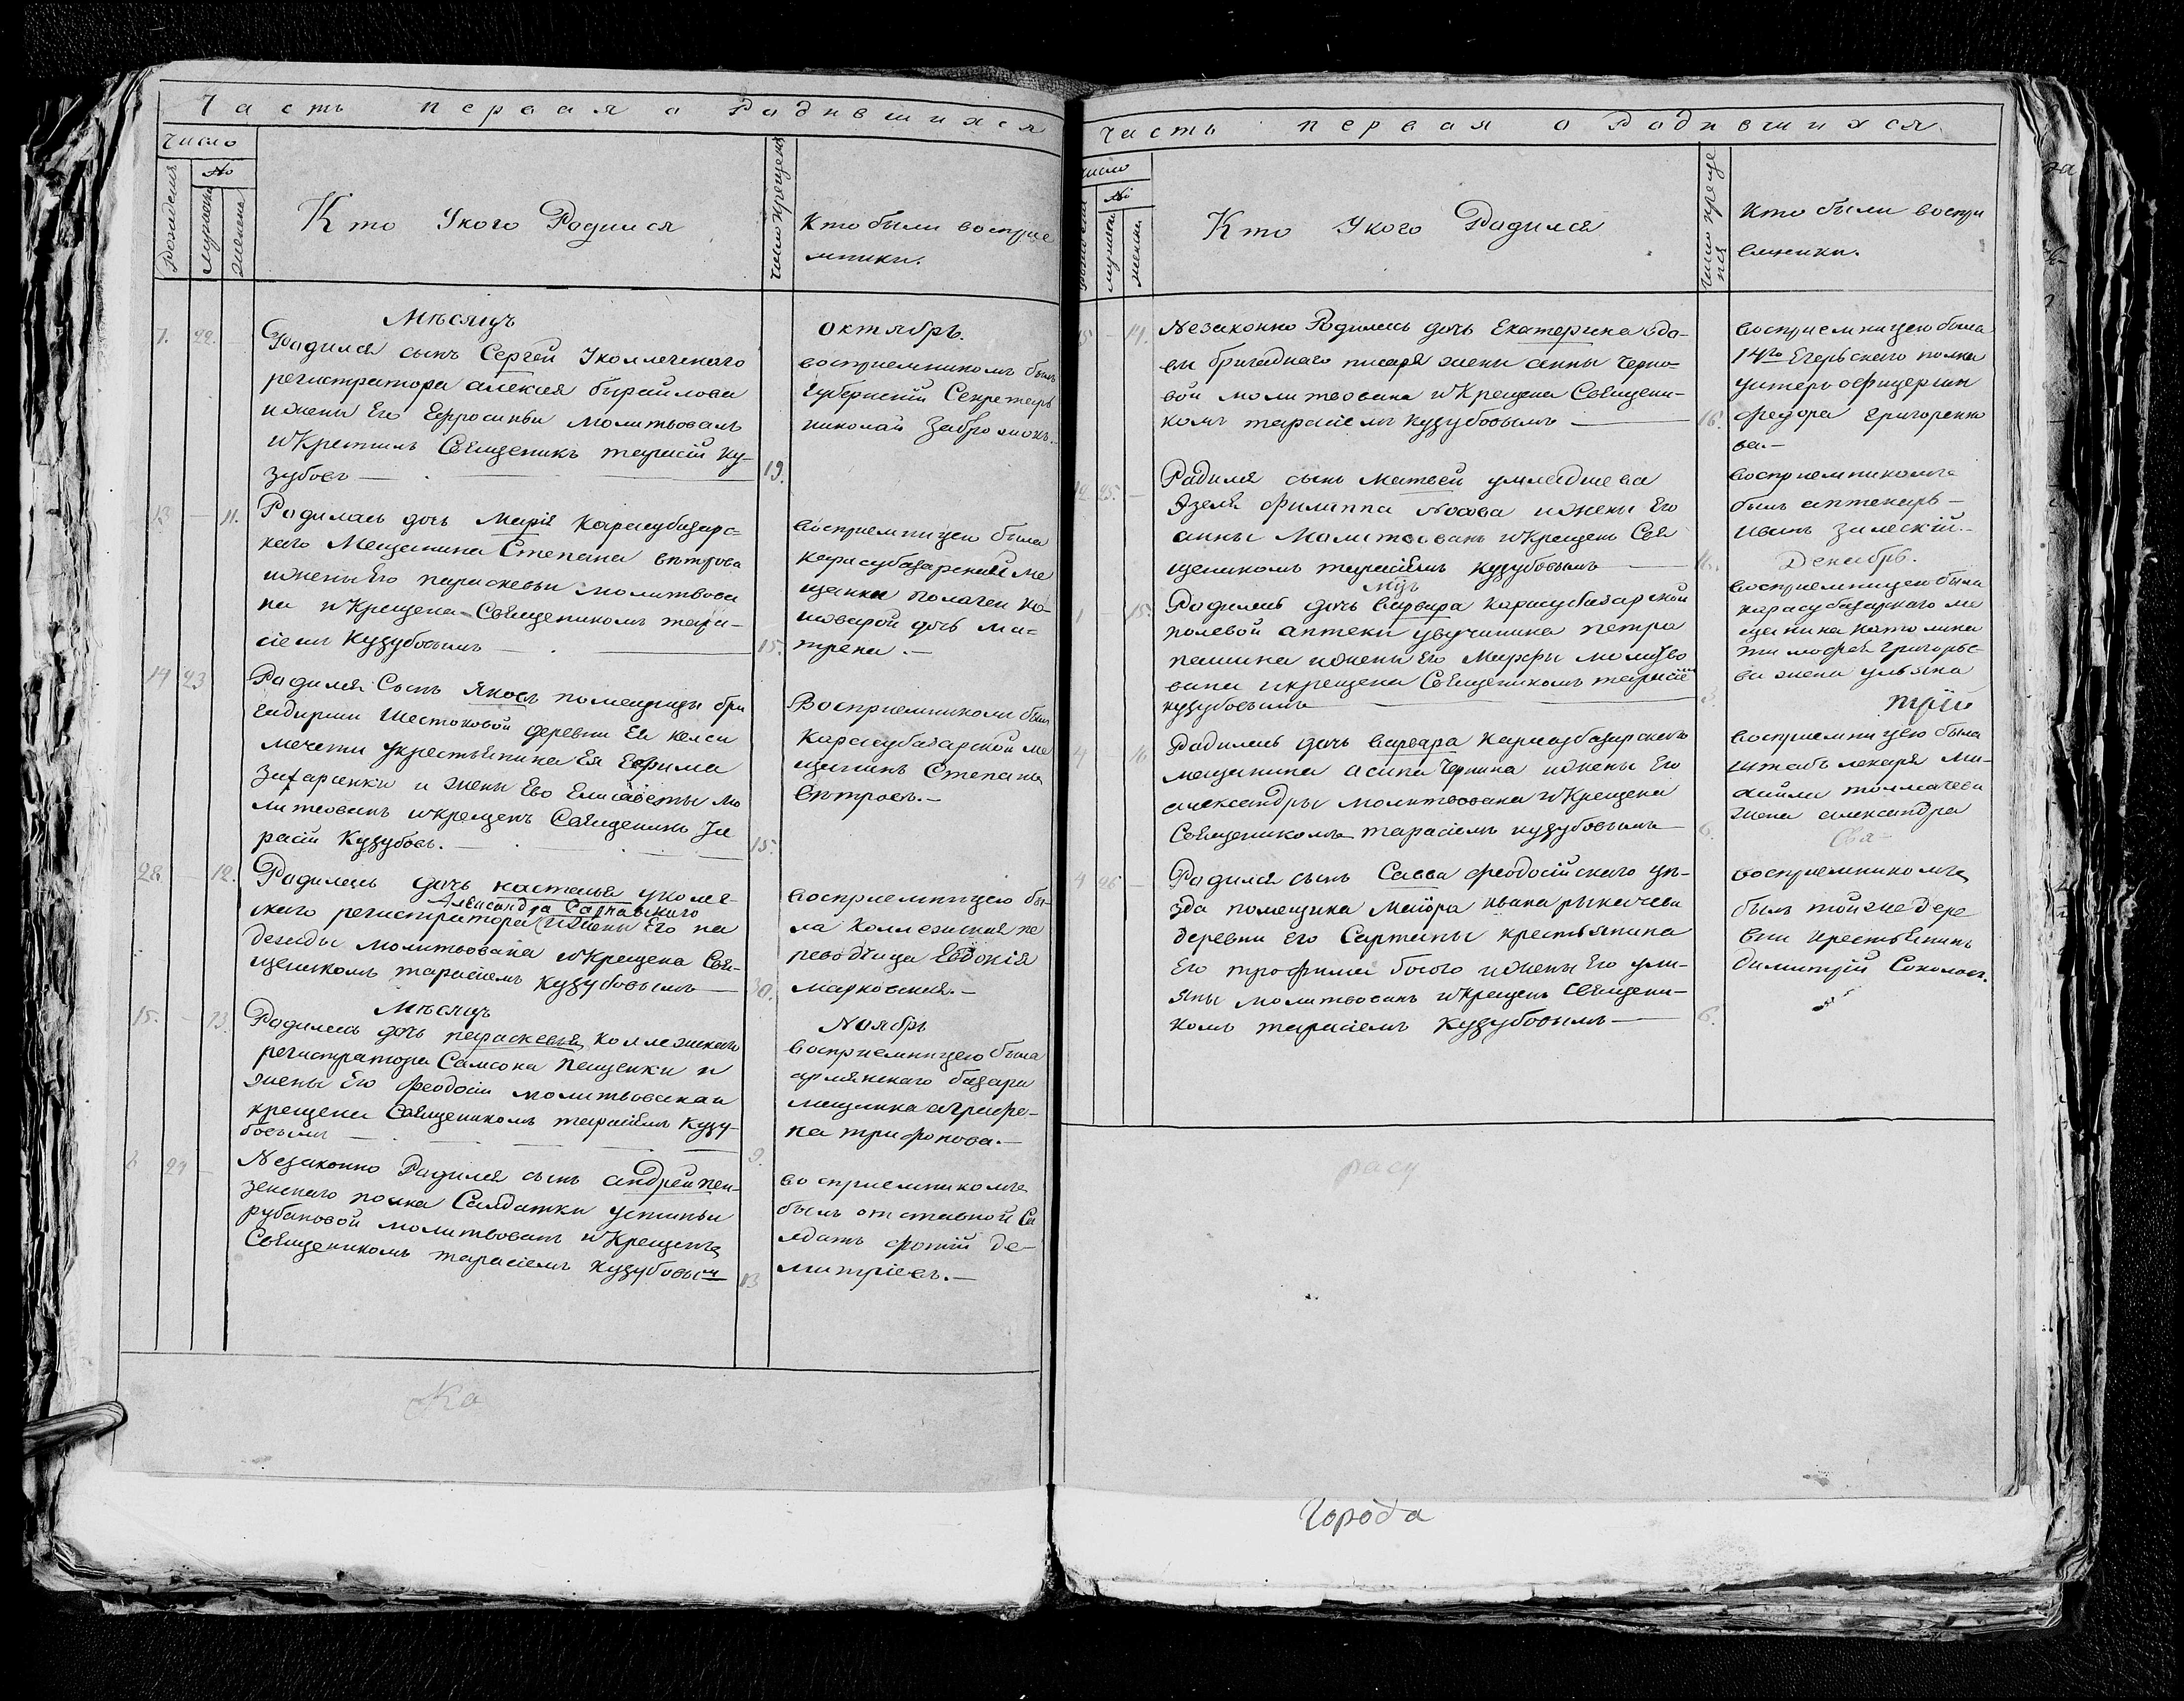 Часть первая о Родившихся
Число
№
Рождения
мужеска
женска
Кто Укого Родился
Число крещения
Кто были восприе
мники.
Мѣсяцъ
октябрь.
7. 22.
Родился сынъ Сергей Уколлечскаго
регистратора алексея бырайлова
ижены Его Ефросиньи молитвовалъ
иКрестилъ Священикъ тарасiй ку-
зубовъ
19.
восприемникомъ былъ
Губернскiй Секретарь
николай
13 — 11.
Родилась дочь Марiя Карасубазарс-
каго Мещанина Степана вѣтрова
ижены Его параскевьи молитвова
на иКрещена Священикомъ тара-
сiемъ Кузубовымъ
15.
восприемницею была
карасубазарской ме
щанки
дочь ма-
трена.—
14 23
Родился Сынъ Яковъ помещицы бри
гадирши Шестаковой деревни Ея келси
мечети Укрестьянина Ея Ефима
Захаренки и жены Ево Елисаветы мо
литвованъ икрещенъ Священикъ Та
расiй Кузубовъ.
15.
Восприемникомъ былъ
Карасубазарской ме
щанинъ Степанъ
Вѣтровъ.—
28. — 12.
Родилась дочь насталья уколе-
Александра Сарнавскаго
скаго регистратора ижены Его на
дежды молитвована иКрещена Свя-
щеникомъ тарасiемъ Кузубовымъ
30.
восприемницею бы-
ла Коллежская пе
реводчица Евдокiя
марковская.—
Мѣсяцъ
Ноябрь
15. — 13.
Родилась дочь параскевья коллежскаго
регистратора Самсона пещенки и
жены Его феодосiи молитвована и
крещена Священикомъ тарасiемъ Кузу-
бовымъ
9.
восприемницею была
армянскаго базара
мещанка аграфе-
на трифонова.—
8 24 —
Незаконно Родился сынъ андрей пен-
зенскаго полка Салдатки устиньи
рубановой молитвованъ иКрещенъ
Священикомъ тарасiемъ Кузубовым
13
восприемникомъ
былъ отставной Са
лдатъ фотiй де-
митрiевъ.—
Ка
Часть первая о Родившихся
число
№
мужеска
женска
Кто Укого Родился
Число креще
нiя
Кто были воспри
емники.
15 — 14.
Незаконно Родилась дочь Екатерина вдо-
вы бригаднаго писаря жены анны Черно-
вой молитвована иКрещена Священи-
комъ тарасiемъ кузубовымъ
16.
восприемницею была
14го Егерьскаго полка
унтеръ офицерши
федора григоренко
ва.—
12 25. —
Родился сынъ Матвей умладшева
Лзеля филиппа Носова ижены Его
анны Молитвованъ иКрещенъ Свя
щеникомъ тарасiемъ кузубовымъ
16.
восприемникомъ
былъ аптекарь—
иванъ залескiй.—
Мцъ
Декабрь.
1 15.
Родилась дочь варвара карасубазарской
полевой аптеки увучинина петра
пашина ижены Его Марфы молитво
вана икрещена Священикомъ тарасiемъ
кузубовымъ
3.
восприемницею была
карасубазарскаго ме
щанина
тимофея григорье-
ва жена ульяна
4 — 16
Родилась дочь варвара Карасубазарскаго
мещанина асипа Чернина ижены Его
александры молитвована иКрещена
Священикомъ тарасiемъ кузубовымъ
6.
восприемницею была
штабъ лекаря ми-
хайлы толмачева
жена александра
4 26 —
Родился сынъ Савва феодосiйскаго уѣ-
зда помещика Маiора ивана рыкачева
деревни его Сартаны крестьянина
Его трофима босого ижены Его ули-
яны молитвованъ иКрещенъ Священи-
комъ тарасiемъ Кузубовымъ
6.
восприемникомъ
былъ тойже дере
вни крестьянинъ
димитрiй Соколовъ.
расу
Города